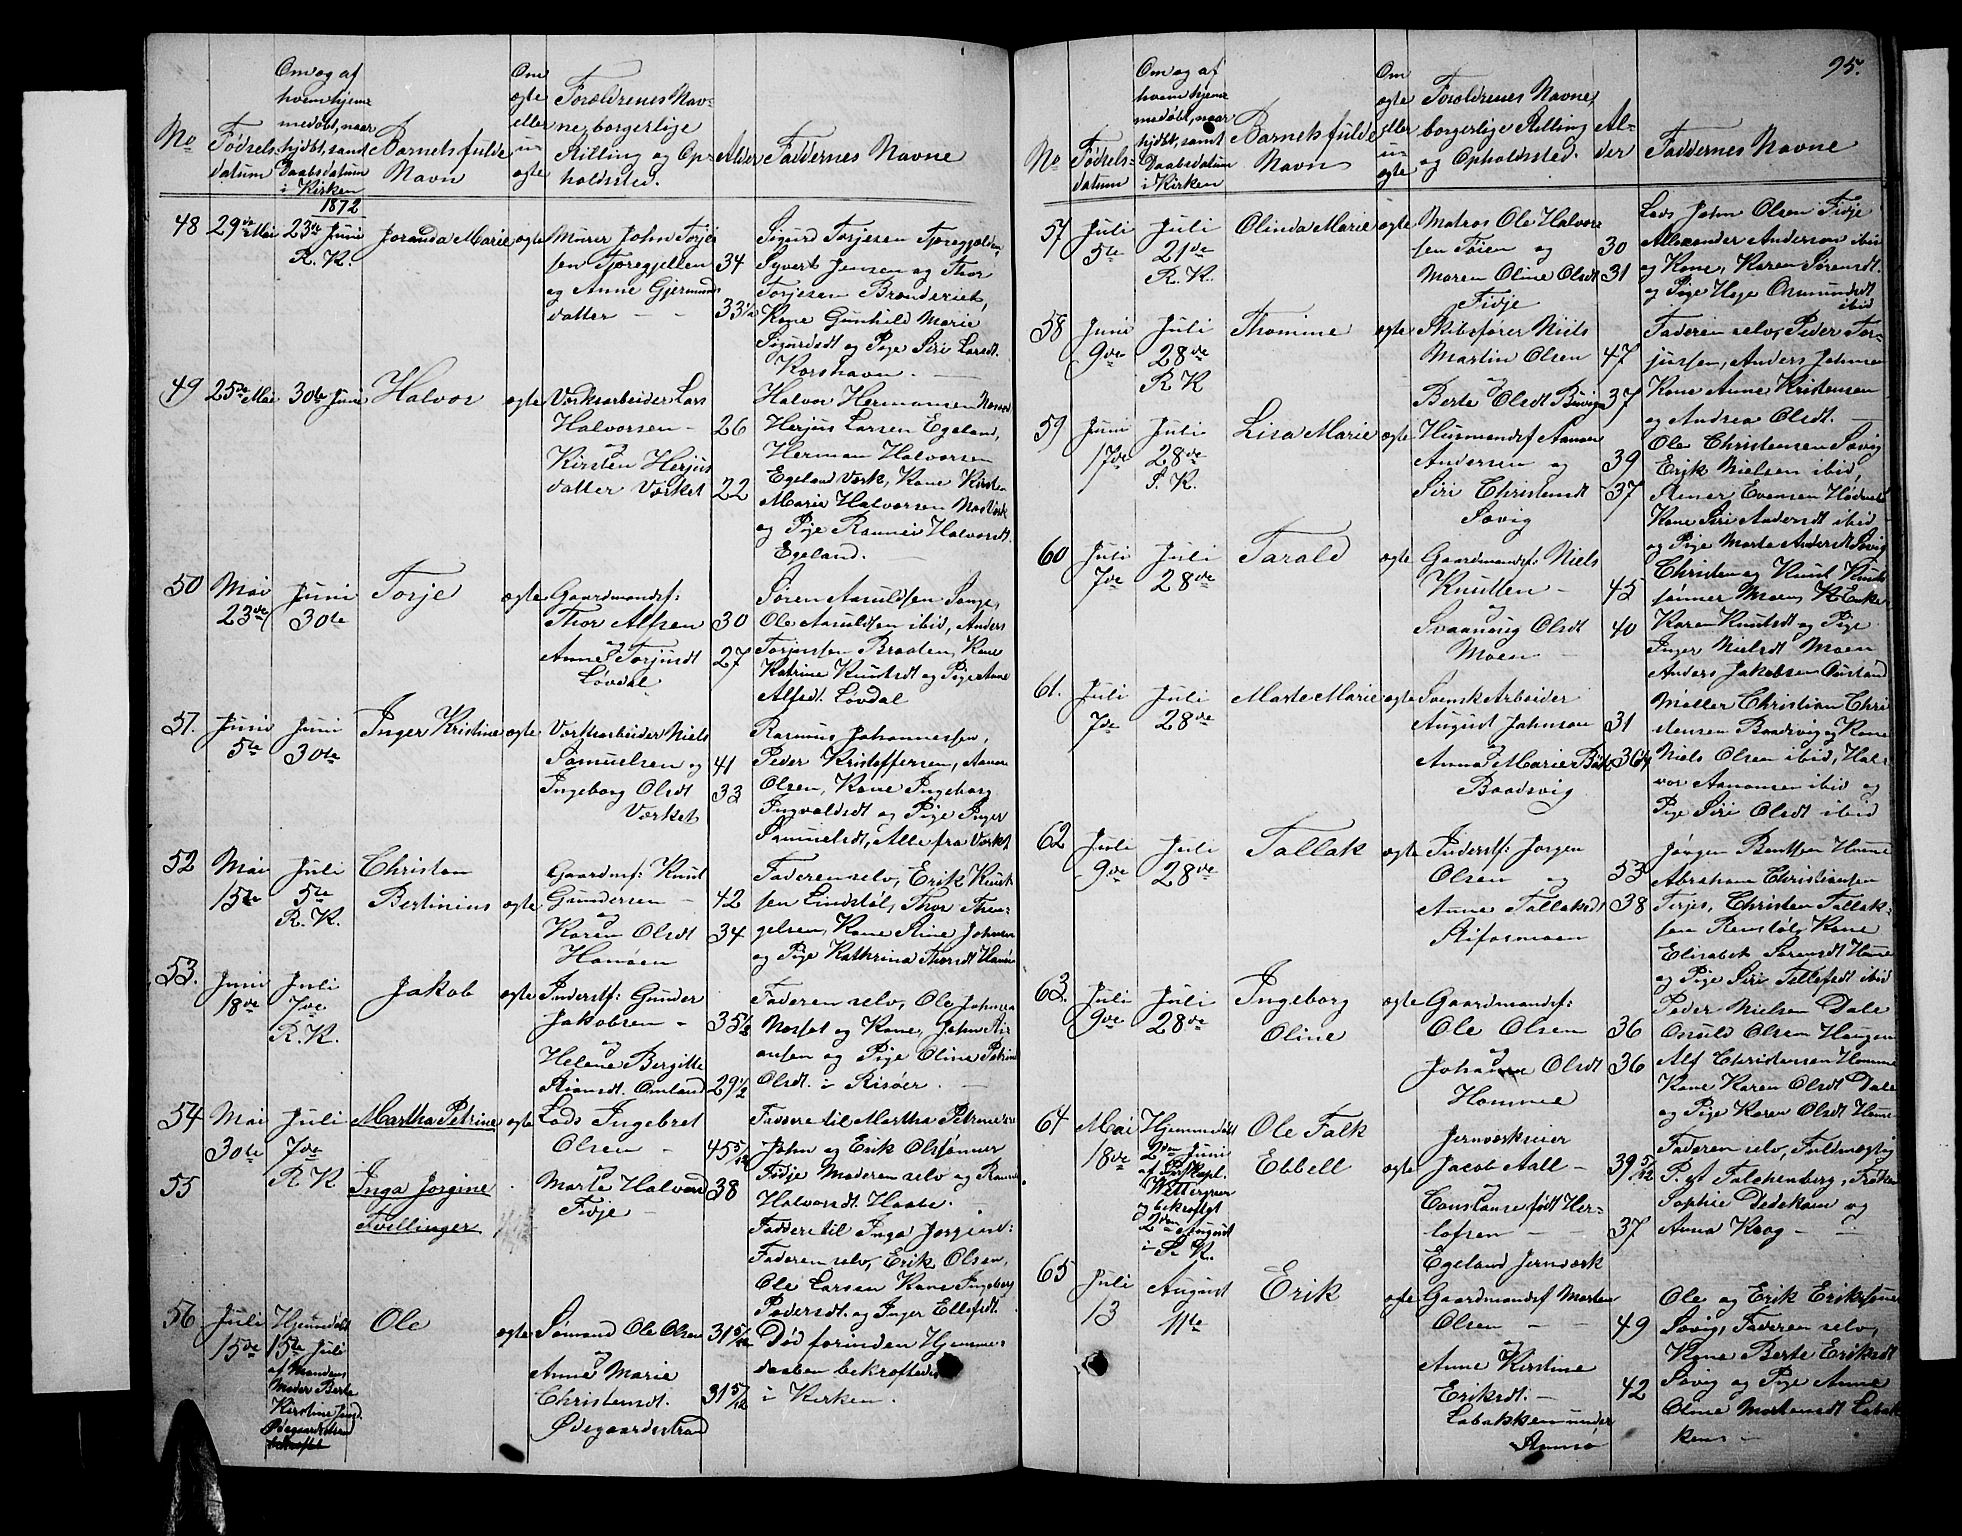 95.
No
Fødsels-
datum
Om og af
hvem hjem-
medøbt, naar
hjdbt, samt
Daabsdatum
i Kirken
Barnets fulde
Navn
Om
ægte
eller
u-
ægte
Forældrenes Nav-
ne, borgerlige
Stilling og Op-
holdssted.
Alder
Faddernes Navne
1872
48
29de Mai
23de Juni
R. K.
Joranda Marie
ægte
Murer John Torjes
sen Tjoregjellen
og Anne Gjermunds
datter
34
33 1/2
Sigurd Torjesen
Syvert Jensen og Thor
Torjesen
Kone Gunhild Marie
Sigurdsdt og Pige Siri Larsdt.
Korshavn.
49
25de Mai
30te Juni
Halvor
ægte
Værksarbeider Lars
Halvorsen
og
Kirsten Herjus
datter Værket
26
22
Halvor Hermansen
Herjus Larsen Egeland,
Herman Halvorsen
Egeland Værk, Kone Kirsten
Marie Halvorsen
og Pige Rannei Halvorsdt.
Egeland.
50
Mai
23de
Juni
30te
Torje
ægte
Gaardmandsf:
Thor Alfsen
og
Anne Torjusdt
Løvdal
30
27
Søren Aasuldsen Songe,
Ole Aasuldsen ibid, Anders
Torjussen Braaten, Kone
Katrine Knutsdt og Pige Anne
Alfsdt. Løvdal
51.
Juni
5te
Juni
30te
Inger Kristine
ægte
Værksarbeider Niels
Samuelsen og
Ingeborg Olsdt
Værket
41
33
Rasmus Johannessen,
Peder Kristoffersen, Aanon
Olsen, Kone Ingeborg
Ingvaldsdt og Pige Inger
Samuelsdt, Alle fra Værket
52
Mai
15de
Juli
5te
R. K.
Christen
Bertinius
ægte
Gaardmf: Knut
Gundersen
og
Karen Olsdt
Hamoen
42
34
Faderen selv, Erik Knut-
sen Lindstøl, Thor Tron-
gelsen, Kone Stine Johnsen
og Pige Kathrina Thorsdt
53.
Juni
18de
Juli
7de
R. K.
Jakob
ægte
Inderstf: Gunder
Jakobsen
og
Helene Bergitte
Omland
35 1/2
29 1/2
Faderen selv, Ole Johnsen
og Kone, John
og Pige Oline Petrine
Olsdt. i Risøer.
54
Mai
30te
Juli
7de
R. K.
Martha Petrine
ægte
Lods Ingebret
Olsen
45 5/12
Faddere til Martha Petrine
John og Erik Olssønner
55
Inga Jorgine
Tvillinger
Marte Halvorsd
Fidje
38
Fidje Moderen selv og
Halvorsdt. Haabe.
Faddere til Inga Jorgine:
Faderen selv, Erik Olsen,
Ole Larsen Kone Ingeborg
Pedersdt. og Inger Ellefsdt.
56
Juli
15de
Hjemdøbt
15te Juli
af Mandens
Moder Berte
Kirstine
Ødegaardstrand
Ole
ægte
Sømand Ole Olsen
og
Anne Marie
Christensdt.
Ødegaardsstrand
31 5/12
31 5/12
Død forinden Hjemme-
daaben bekræftedes
i Kirken.
No
Fødsels-
datum
Om og af
hvem hjem-
medøbt, naar
hjdbt, samt
Daabsdatum
i Kirken
Barnets fulde
Navn
Om
ægte
eller
u-
ægte
Forældrenes Navne
borgerlige Stilling
og Opholdssted.
Al-
der
Faddernes Navne
57
Juli
5te
Juli
21de
R. K.
Olinda Marie
ægte
Matros Ole Halvor
sen Tøien og
Maren Oline Olsdt
Fidje
30
31
Lods John Olsen Fidje
Alexander Anderson ibid
og Kone, Karen Sørensdt.
og Pige Hege Osmundsdt
ibid
58
Juni
9de
Juli
28de
R. K
Thomine
ægte
Skibsfører Niels
Martin Olsen
og
Berte Olsdt
47
37
Faderen selv, Peder Tor-
jussen, Anders Johnsen
Kone Anne Kristensen
og Andrea Olsdt.
59
Juni
17de
Juli
28de
S. K.
Lisa Marie
ægte
Husmandsf Aanon
Andersen og
Siri Christensdt
Søvig
39
37
Ole Christensen Søvig
Erik Nielsen ibid,
Stener Evensen
Kone Siri Andersdt ibid
og Pige Marte Andersdt Søvig
60
Juli
7de
Juli
28de
Tarald
ægte
Gaardmandsf: Niels
Knutsen
og
Svaanaug Olsdt
Moen
45
40
Christen og Knut Knut-
sønner Moen, K Enke
Karen Knutsdt og Pige
Inger Nielsdt Moen
61.
Juli
7de
Juli
28de
Marte Marie
ægte
Svensk Arbeider
August Johnson
og
Anna Marie
Baadsvig
31
36
Anders Jakobsen
Møller Christian Chri
stensen Baadsvig og Kone
Niels Olsen ibid, Hal-
vor Aanonsen ibid og
Pige Siri Olsdt ibid
62
Juli
9de
Juli
28de
Tallak
ægte
Inderstf: Jorgen
Olsen og
Anne Tallaksdt
Stifosmoen
53
38
Jørgen Bentsen
Abraham Christiansen
Christen Tallak-
sen Kone
Elisabet Sørensdt
og Pige Siri Tellefsdt ibid
63.
Juli
9de
Juli
28de
Ingeborg
Oline
ægte
Gaardmandsf:
Ole Olsen
og
Johanne Olsdt
Homme
36
36
Peder Nielsen Dale
Osuld Olsen Haugen
Alf Christensen Homme
Kone Karen Olsdt Dale
og Pige Karen Olsdt
64
Mai
18de
Hjemmedøbt
2den Juni
af
Wettergreen
og bekræftet
2den August
i S. K.
Ole Falk
Ebbell
ægte
Jernværkseier
Jacob Aall
og
Constanse født Her-
lofsen
Egeland Jernværk
39 5/12
37
Faderen selv, Fuldmægtig
P. st Falchenberg, Frøken
Sophie Dedekam og
Anna Krog
65
Juli
13
August
11te
Erik
ægte
Gaardmandsf Morten
Olsen
og
Anne Kirstine
Eriksdt.
Labakken under
49
42
Ole og Erik Erikssønner
Søvig, Faderen selv,
Kone Berte Eriksdt
Søvig og Pige Anne
Oline Mortensdt Labak
ken